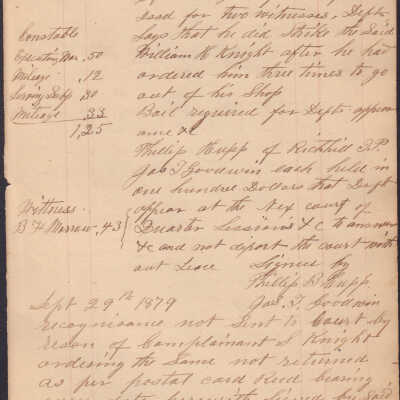 Sead for two witnesses, Deft
Says that he did Strike the Said
William H Knight after he had
ordered him three times to go
out of his Shop
Bail required for Defts appear
ance &c
Phillip Hupp of Richhill T.P.
Jas T Goodwin each held in
one hundred Dollars that Deft
appear at the Nex court of
Quarter Sessions &c to answer
&c and not depart the court with
out Leave Signed by
Phillip B Hupp
Jas. T. Goodwin
Constable
Executing War. .50
Mileage .12
Serving Subp .30
Mileage .33
1,25
Wittness
B H Morrow .43
Sept 29th 1879
recognisance not Sent to Court by
reson of Complainant S Knight
ordering the Same not returned
as per postal card Recd bearing